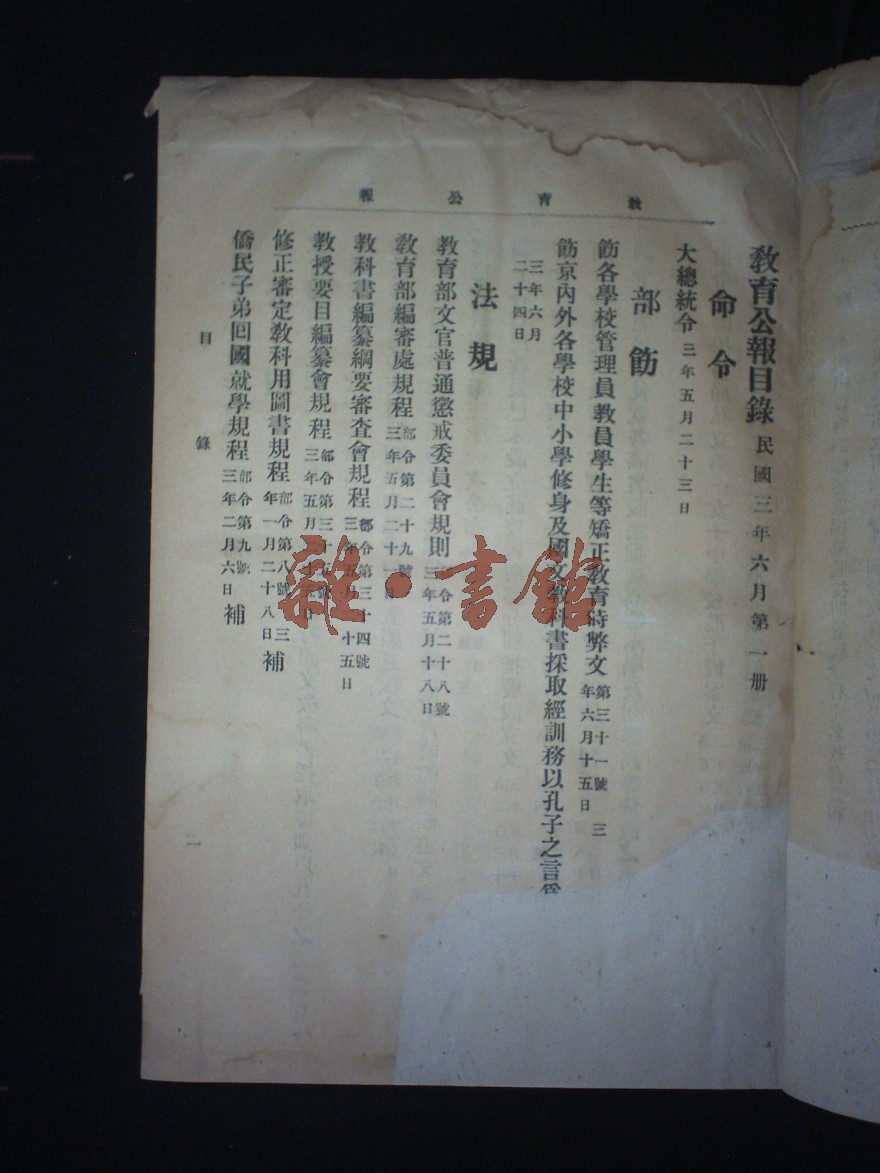 教育公報
教育公報目錄 民國三年六月第一册
命令
大總統令 三年五月二十三日
部飭
飭各學校管理員教員學生等矯正教育時弊文 第三十一號 三年六月十五日
飭京內外各學校中小學修身及國文教科書採取經訓務以孔子之言爲
三年六月二十四日
法規
教育部文官普通懲戒委員會規則 令第二十八號 三年五月十八日
教育部編審處規程 部令第二十九號 三年五月二十一日
教科書編纂綱要審査會規程 部令第三十四號 三年五月二十五日
教授要目編纂會規程 部令第三十五號 三年五月二十五日
修正審定教科用圖書規程 部令第八號 三年一月二十八日 補
僑民子弟回國就學規程 部令第九號 三年二月六日 補
目錄
一
雜·書館